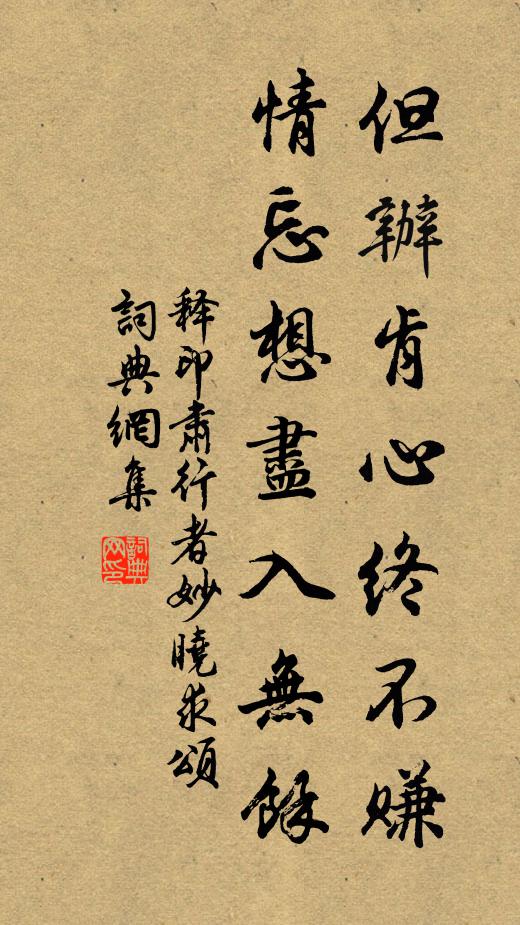 但辦肯心終不賺
情忘想盡入無餘
释印肅行者妙曉求頌
詞典網集
詞典网印